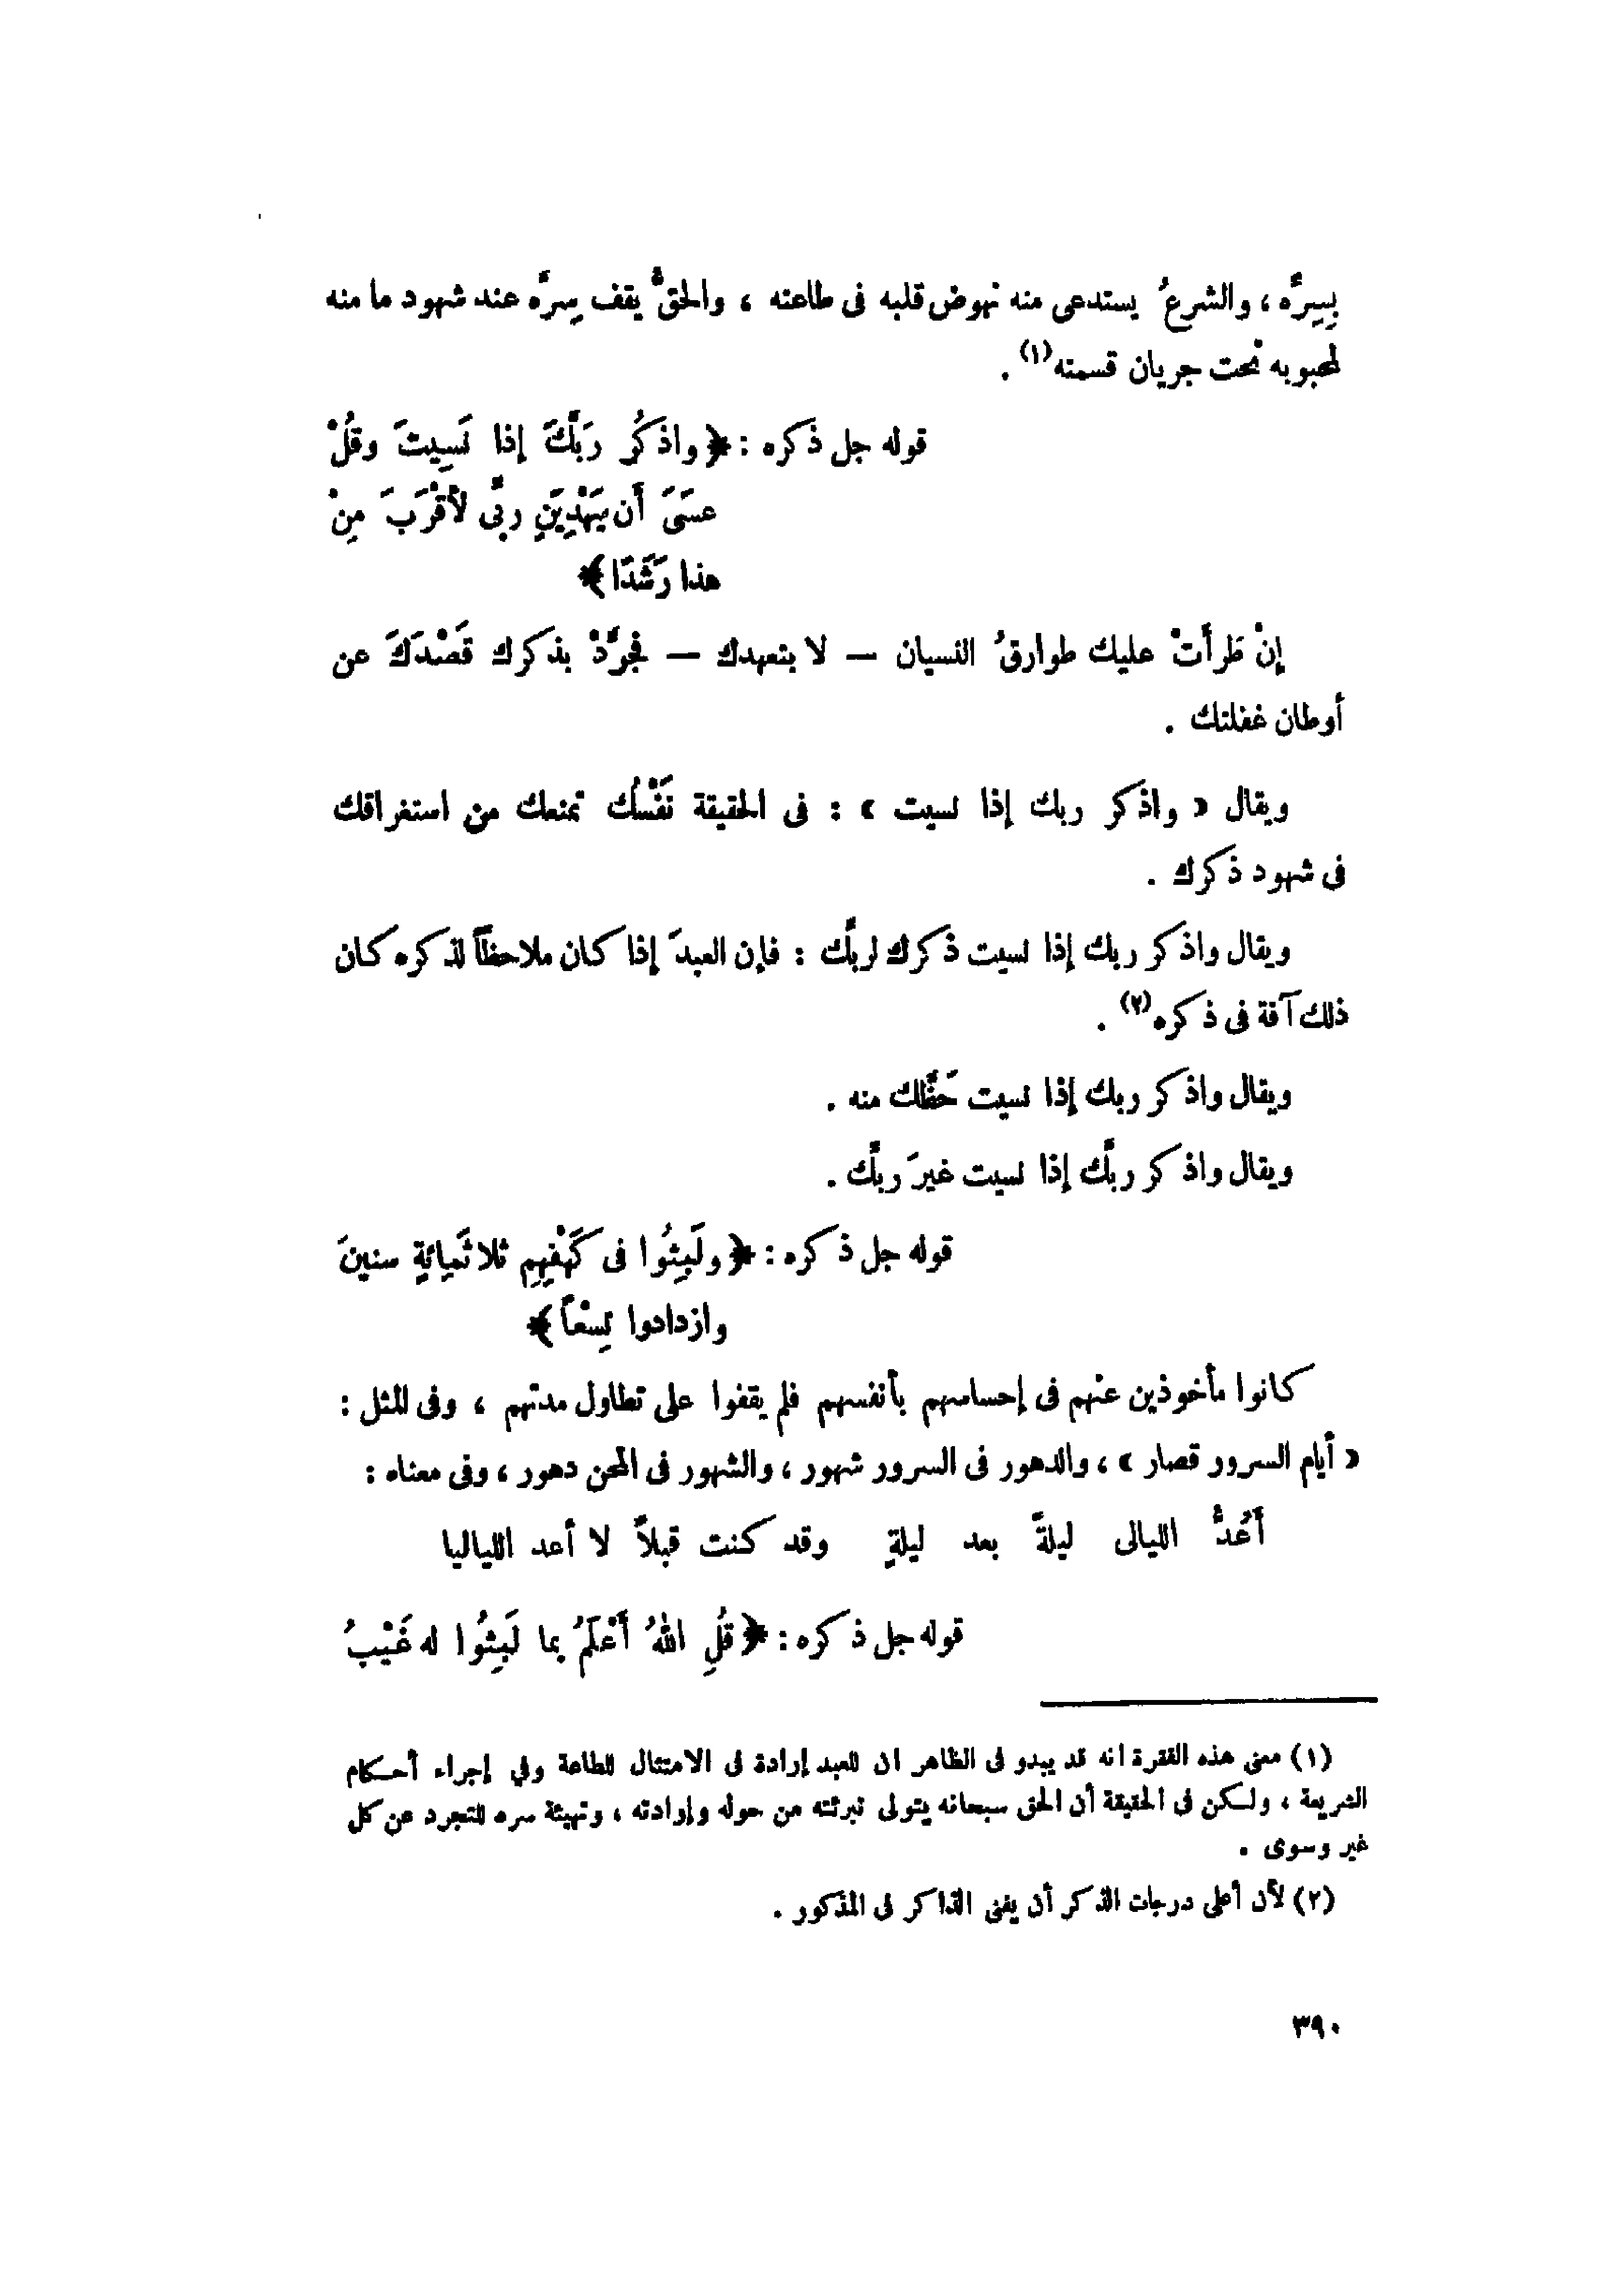 بِسِرِّه ، والشرعُ يستدعى منه نهوض قلبه فى طاعته ، والحقُّ يقف سِرَّه عند شهود ما منه
لمحبوبه تحت جريان قسمته(١) .
قوله جل ذكره : ﴿ واذكُر رَبَّكَ إذا نَسِيتَ وقُلْ
عسَىَ أَن يَهْدِيَنِ ربِّى لأَقْرَبَ مِنْ
هذا رَشَدًا ﴾
إنْ طَرأَتْ عليك طوارقُ النسيان — لا بتعهدك — فجرِّدْ بذكرك قَصْدَكَ عن
أوطان غفلتك .
ويقال « واذكر ربك إذا نسيت » : فى الحقيقة نَفْسُك تمنعك من استغراقك
فى شهود ذكرك .
ويقال واذكر ربك إذا نسيت ذكرك لربِّك : فإن العبدَ إذا كان ملاحظاً لذكره كان
ذلك آفة فى ذكره(٢) .
ويقال واذكر ربك إذا نسيت حَظَّك منه .
ويقال واذكر ربَّك إذا نسيت غيرَ ربِّك .
قوله جل ذكره : ﴿ ولَبِثُوا فى كَهْفِهِم ثلاثَمِائةٍ سنينَ
وازدادوا تِسْعاً ﴾
كانوا مأخوذين عنهم فى إحساسهم بأنفسهم فلم يقفوا على تطاول مدتهم ، وفى المثل :
« أيام السرور قصار » ، والدهور فى السرور شهور ، والشهور فى المحن دهور ، وفى معناه :
أَعُدُّ الليالى ليلةً بعد ليلةٍ وقد كنت قبلاً لا أعد اللياليا
قوله جل ذكره : ﴿ قُلِ اللهُ أَعْلَمُ بما لَبِثُوا له غَيْبُ
(١) معنى هذه الفقرة انه قد يبدو فى الظاهر ان للعبد إرادة فى الامتثال للطاعة وفي إجراء أحكام
الشريعة ، ولكن فى الحقيقة أن الحق سبحانه يتولى تبرئته من حوله وإرادته ، وتهيئة سره للتجرد عن كل
غير وسوى .
(٢) لأن أعلى درجات الذكر أن يفنى الذاكر فى المذكور .
٣٩٠